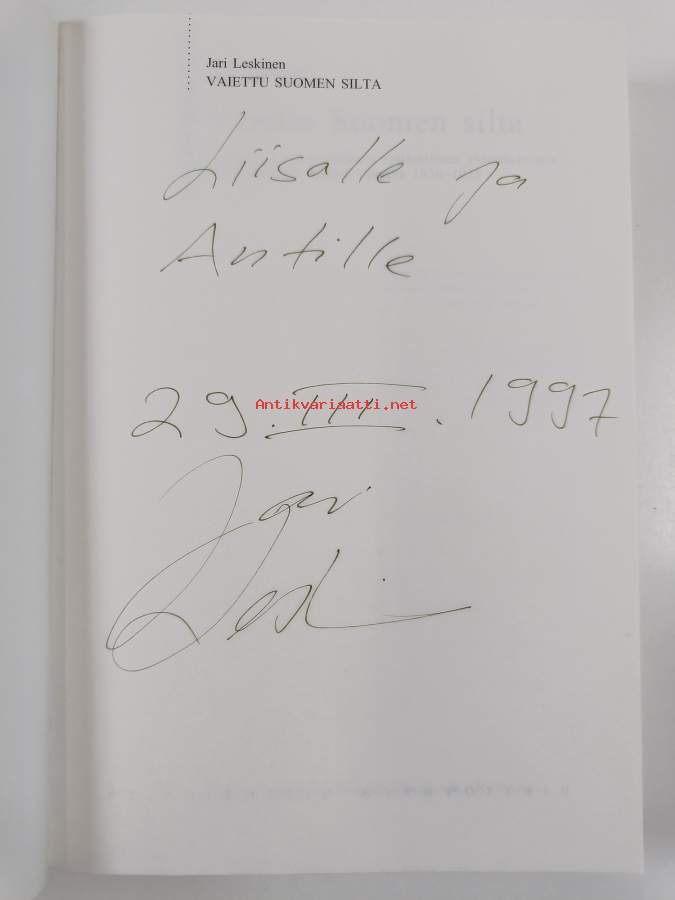 Jari Leskinen
VAIETTU SUOMEN SILTA
Liisalle ja
Antille
29.III.1997
Antikvariaatti.net
Jari